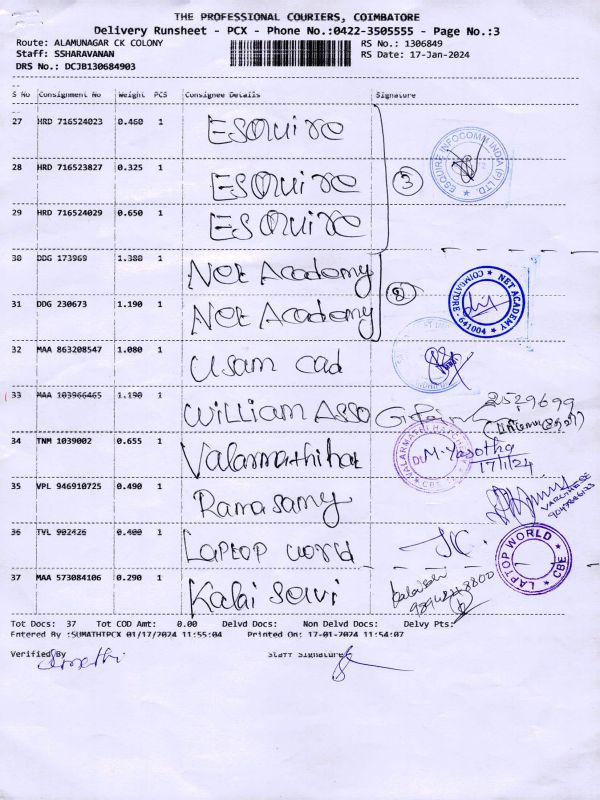 THE PROFESSIONAL COURIERS, COIMBATORE
Delivery Runsheet - PCX - Phone No.:0422-3505555 - Page No.:3
Route: ALAMUNAGAR CK COLONY RS No.: 1306849
Staff: SSHARAVANAN RS Date: 17-Jan-2024
DRS No.: DCJB130684903
S No Consignment No Weight PCS Consignee Details Signature
27 HRD 716524023 0.460 1 ESQUIRE
ESQUIRE INFOCOMM INDIA (P) LTD
28 HRD 716523827 0.325 1 ESQUIRE 3
29 HRD 716524029 0.650 1 ESQUIRE
30 DDG 173969 1.380 1 Net Academy
NET ACADEMY COIMBATORE-641004
31 DDG 230673 1.190 1 Net Academy
32 MAA 863208547 1.080 1 Usam cad
33 MAA 103966465 1.190 1 William Asso 2529699
34 TNM 1039002 0.655 1 Valarmathi M. Yasotha
17/1/24
35 VPL 946910725 0.490 1 Ramasamy
VARGHESE
36 TVL 902426 0.400 1 Laptop world
LAPTOP WORLD CBE
37 MAA 573084106 0.290 1 Kalai selvi
Tot Docs: 37 Tot COD Amt: 0.00 Delvd Docs: Non Delvd Docs: Delvy Pts:
Entered By :SUMATHIPCX 01/17/2024 11:55:04 Printed On: 17-01-2024 11:54:07
Verified By Staff Signature